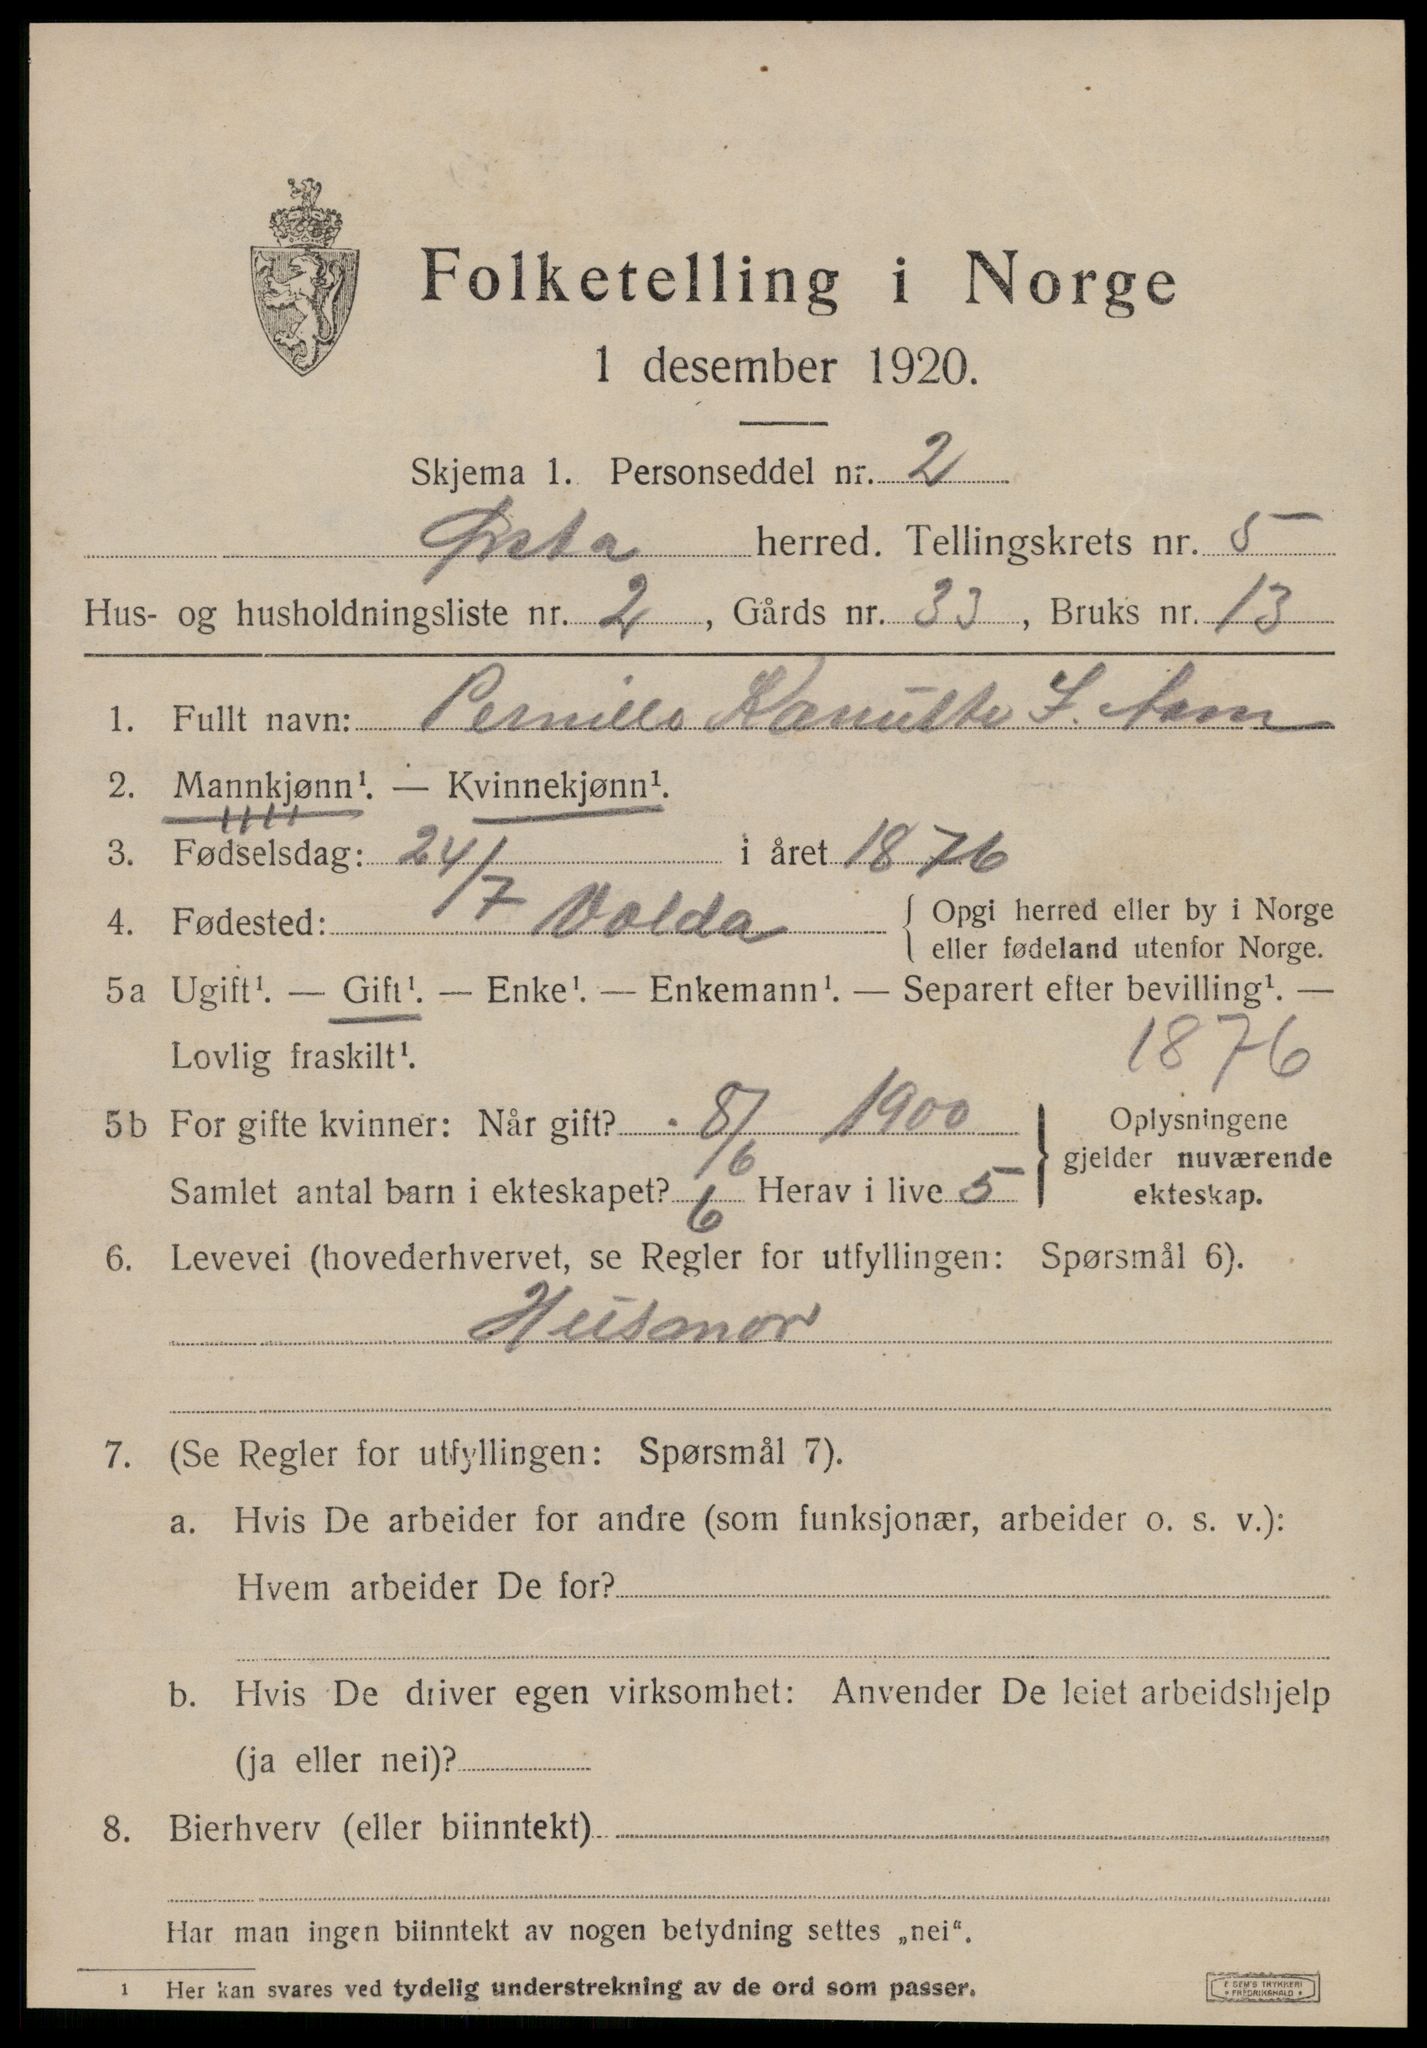 Folketelling i Norge
1 desember 1920.
Skjema 1. Personseddel nr. 2
Ørsta herred. Tellingskrets nr. 5
Hus- og husholdningsliste nr. 2, Gårds nr. 33, Bruks nr. 13
1. Fullt navn: Pernille
2. Mannkjønn¹. — Kvinnekjønn¹.
3. Fødselsdag: 24/7 i året 1876
4. Fødested: Volda { Opgi herred eller by i Norge
eller fødeland utenfor Norge.
5a Ugift¹. — Gift¹. — Enke¹. — Enkemann¹. — Separert efter bevilling¹. —
Lovlig fraskilt¹. 1876
5b For gifte kvinner: Når gift? 8/6 1900 } Oplysningene
gjelder nuværende
Samlet antal barn i ekteskapet? 6 Herav i live 5 ekteskap.
6. Levevei (hovederhvervet, se Regler for utfyllingen: Spørsmål 6).
Husmor
7. (Se Regler for utfyllingen: Spørsmål 7).
a. Hvis De arbeider for andre (som funksjonær, arbeider o. s. v.):
Hvem arbeider De for?
b. Hvis De driver egen virksomhet: Anvender De leiet arbeidshjelp
(ja eller nei)?
8. Bierhverv (eller biinntekt)
Har man ingen biinntekt av nogen betydning settes „nei“.
1 Her kan svares ved tydelig understrekning av de ord som passer.
E SEM'S TRYKKERI
FREDRIKSHALD